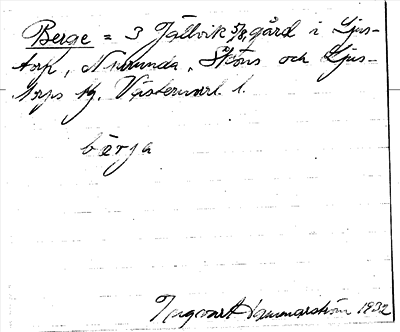 Berge = 3 Jällvik 5/8, gård i Ljus-
torp, Njurunda, Sköns och Ljus-
torps tg. Västernorrl. l.
bärja
Ingvar Hammarström 1932